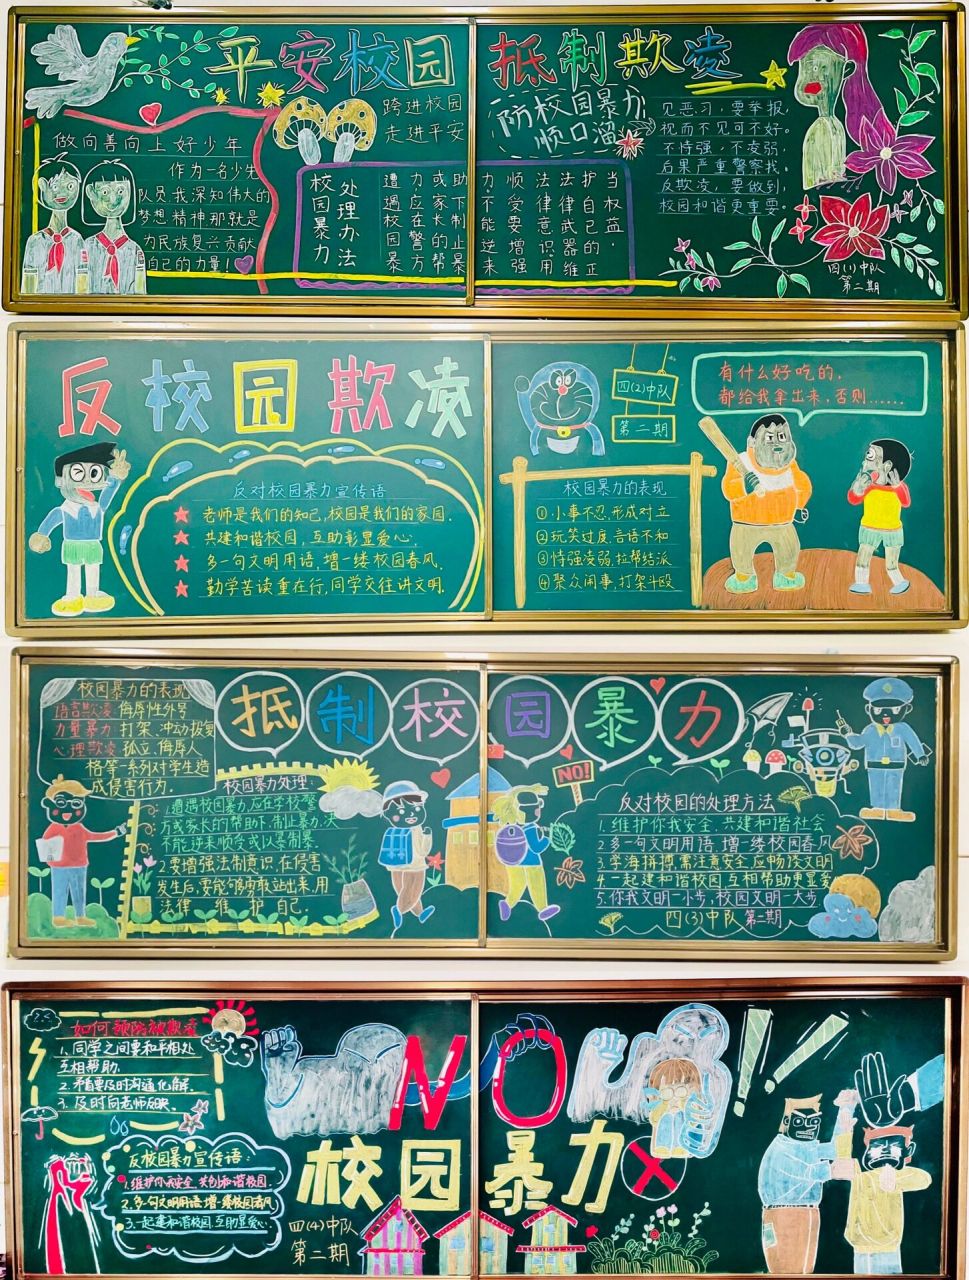 平安校园 抵制欺凌
跨进校园
走进平安
防校园暴力
顺口溜
做向善向上好少年
作为一名少先
队员,我深知伟大的
梦想精神那就是
为民族复兴贡献
自己的力量!
校园暴力
处理办法
遭遇校园暴
力应在警方
或家长的帮
助下制止暴
力不能逆来
顺受要增强
法律意识用
法律武器维
护自己的正
当权益.
见恶习,要举报,
视而不见可不好。
不恃强,不凌弱,
后果严重警察找。
反欺凌,要做到,
校园和谐更重要。
四(1)中队
第二期
反校园欺凌
反对校园暴力宣传语
老师是我们的知己,校园是我们的家园.
共建和谐校园,互助彰显爱心.
多一句文明用语,增一缕校园春风.
勤学苦读重在行,同学交往讲文明.
四(2)中队
第二期
有什么好吃的.
都给我拿出来,否则......
校园暴力的表现
①小事不忍,形成对立
②玩笑过度,言语不和
③恃强凌弱,拉帮结派
④聚众闹事,打架斗殴
抵制校园暴力
校园暴力的表现
语言欺凌 侮辱性外号
力量暴力 打架、冲动报复
心理欺凌 孤立、侮辱人
格等一系列对学生造
成侵害行为.
校园暴力处理:
1.遭遇校园暴力,应在学校警
方或家长的帮助下,制止暴力.决
不能逆来顺受或以暴制暴.
2.要增强法制意识,在侵害
发生后,要能够勇敢站出来,用
法律维护自己.
NO!
反对校园的处理方法
1.维护你我安全,共建和谐社会
2.多一句文明用语,增一缕校园春风
3.学海拼搏需注意安全,应畅谈文明
4.一起建和谐校园,互相帮助更显爱
5.你我文明一小步,校园文明一大步
四(3)中队 第二期
如何预防被欺凌
1.同学之间要和平相处
互相帮助.
2.矛盾要及时沟通化解.
3.及时向老师反映.
反校园暴力宣传语:
1.维护你我安全,共创和谐校园.
2.多一句文明用语,增一缕校园春风
3.一起建和谐校园,互助显爱心.
NO!!
校园暴力
四(4)中队
第二期